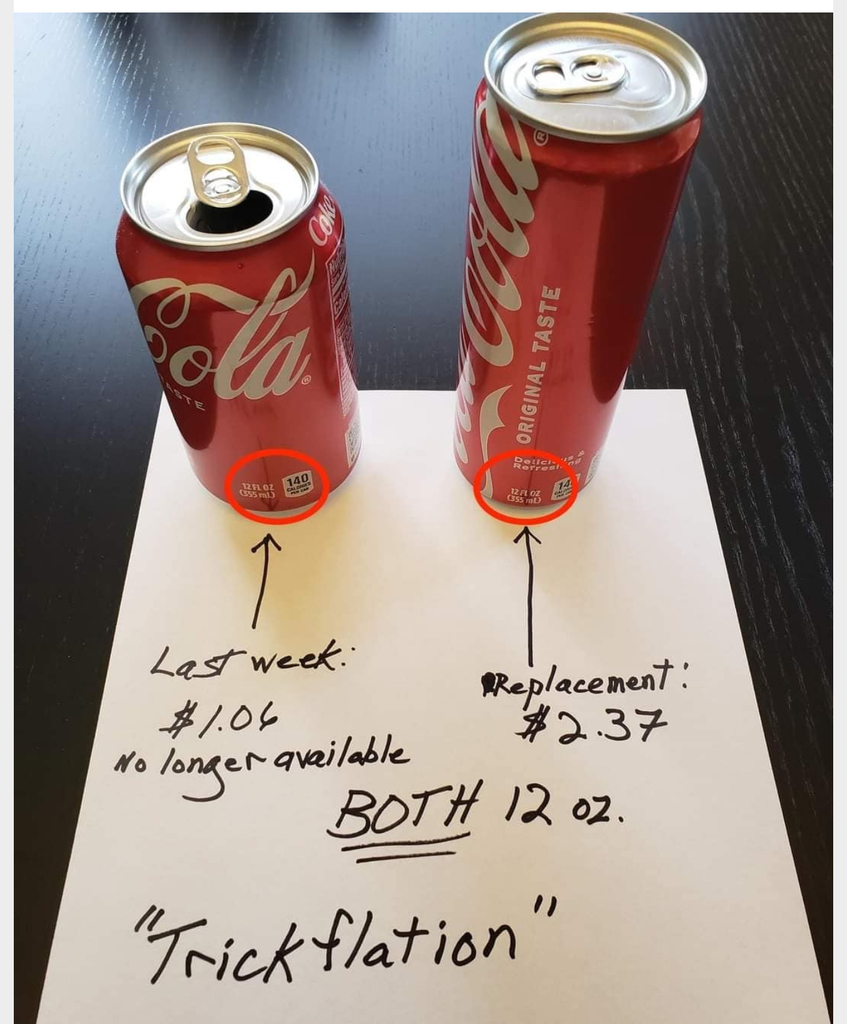 Coke
Cola®
TASTE
140
CALORIES
PER CAN
12 FL OZ
(355 mL)
Cola
®
ORIGINAL TASTE
Delicious &
Refreshing
12 FL OZ
(355 mL)
14
Last week:
$1.06
No longer available
Replacement:
$2.37
BOTH 12 oz.
"Trickflation"